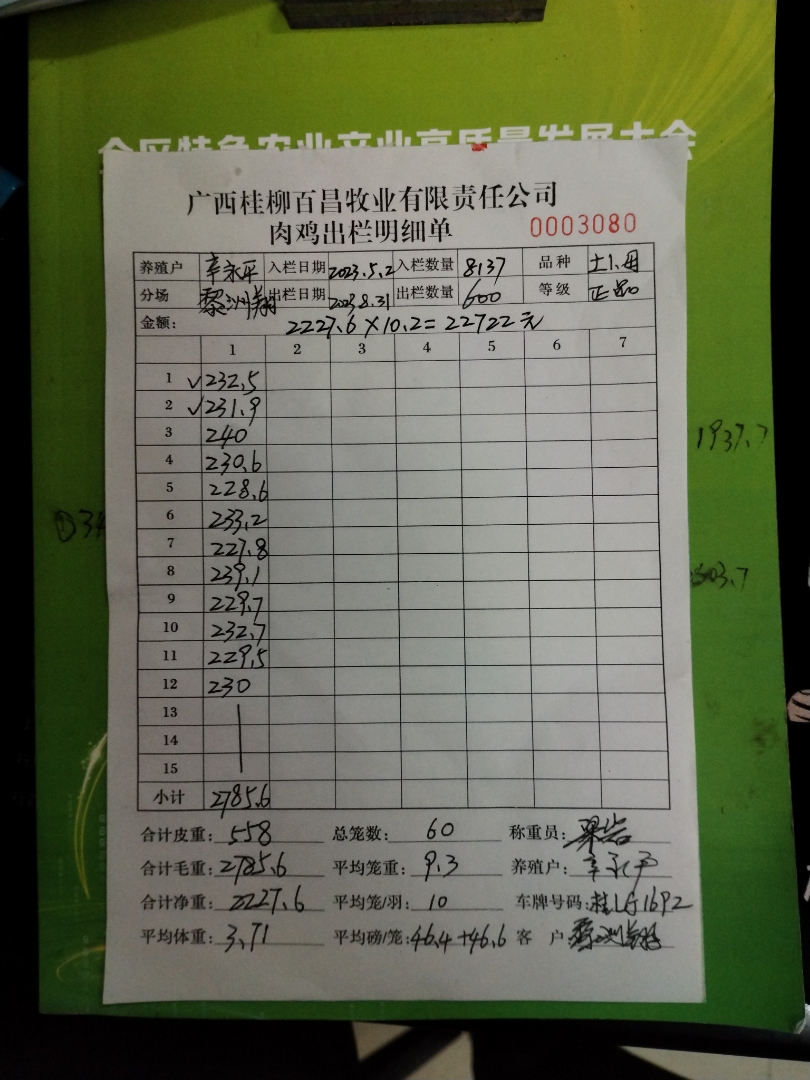 全区特色农业产业高质量发展大会
广西桂柳百昌牧业有限责任公司
肉鸡出栏明细单 0003080
养殖户 辛永平 入栏日期 2023.5.2 入栏数量 8137 品种 土1.母
分场 黎洲翔 出栏日期 2023.8.31 出栏数量 600 等级 正品
金额: 2227.6×10.2=22722元
1 2 3 4 5 6 7
1 √232.5
2 √231.9
3 240
4 230.6
5 228.6
6 233.2
7 227.8
8 239.1
9 229.7
10 232.7
11 229.5
12 230
13
14
15
小计 2785.6
合计皮重: 558 总笼数: 60 称重员: 梁岩
合计毛重: 2785.6 平均笼重: 9.3 养殖户: 辛永平
合计净重: 2227.6 平均笼/羽: 10 车牌号码: 桂LG1692
平均体重: 3.71 平均磅/笼: 46.4+46.6 客 户 黎洲翔
1937.7
603.7